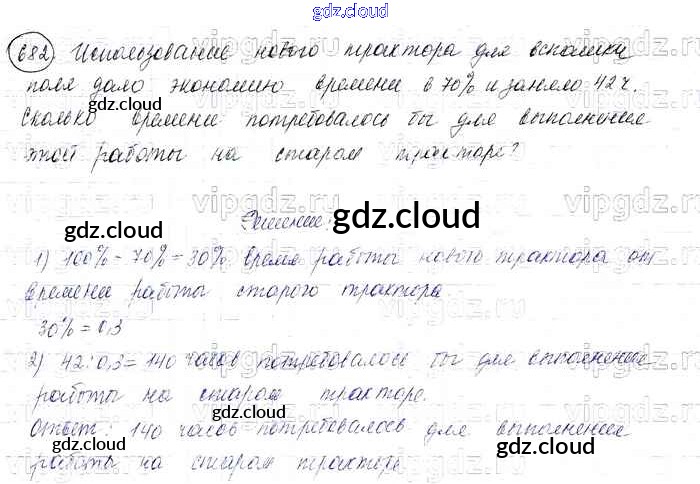 gdz.cloud
682 Использование нового трактора для вспашки
поля дало экономию времени в 70% и заняло 42 ч.
Сколько времени потребовалось бы для выполнения
этой работы на старом тракторе?
Решение:
1) 100% - 70% = 30% время работы нового трактора от
времени работы старого трактора.
30% = 0,3
2) 42:0,3 = 140 часов потребовалось бы для выполнение
работы на старом тракторе.
Ответ: 140 часов потребовалось для выполнения
работы на старом тракторе